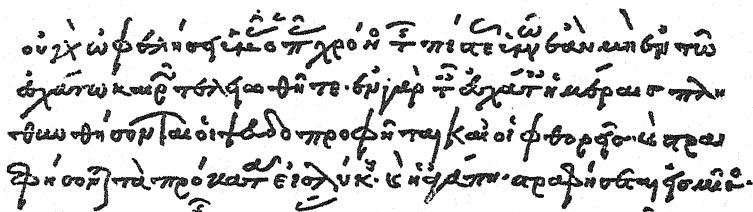 οὐ γὰρ ὠφελήσει ὑμᾶς ὁ πᾶς χρόνος τῆς πίστεως ὑμῶν ἐὰν μὴ ἐν τῷ
ἐσχάτῳ καιρῷ τελειωθῆτε· ἐν γὰρ ταῖς ἐσχάταις ἡμέραις πλη
θυνθήσονται οἱ ψευδοπροφῆται καὶ οἱ φθορεῖς· καὶ στρα
φήσονται τὰ πρόβατα εἰς λύκους· καὶ ἡ ἀγάπη· στραφήσεται εἰς μῖσος·